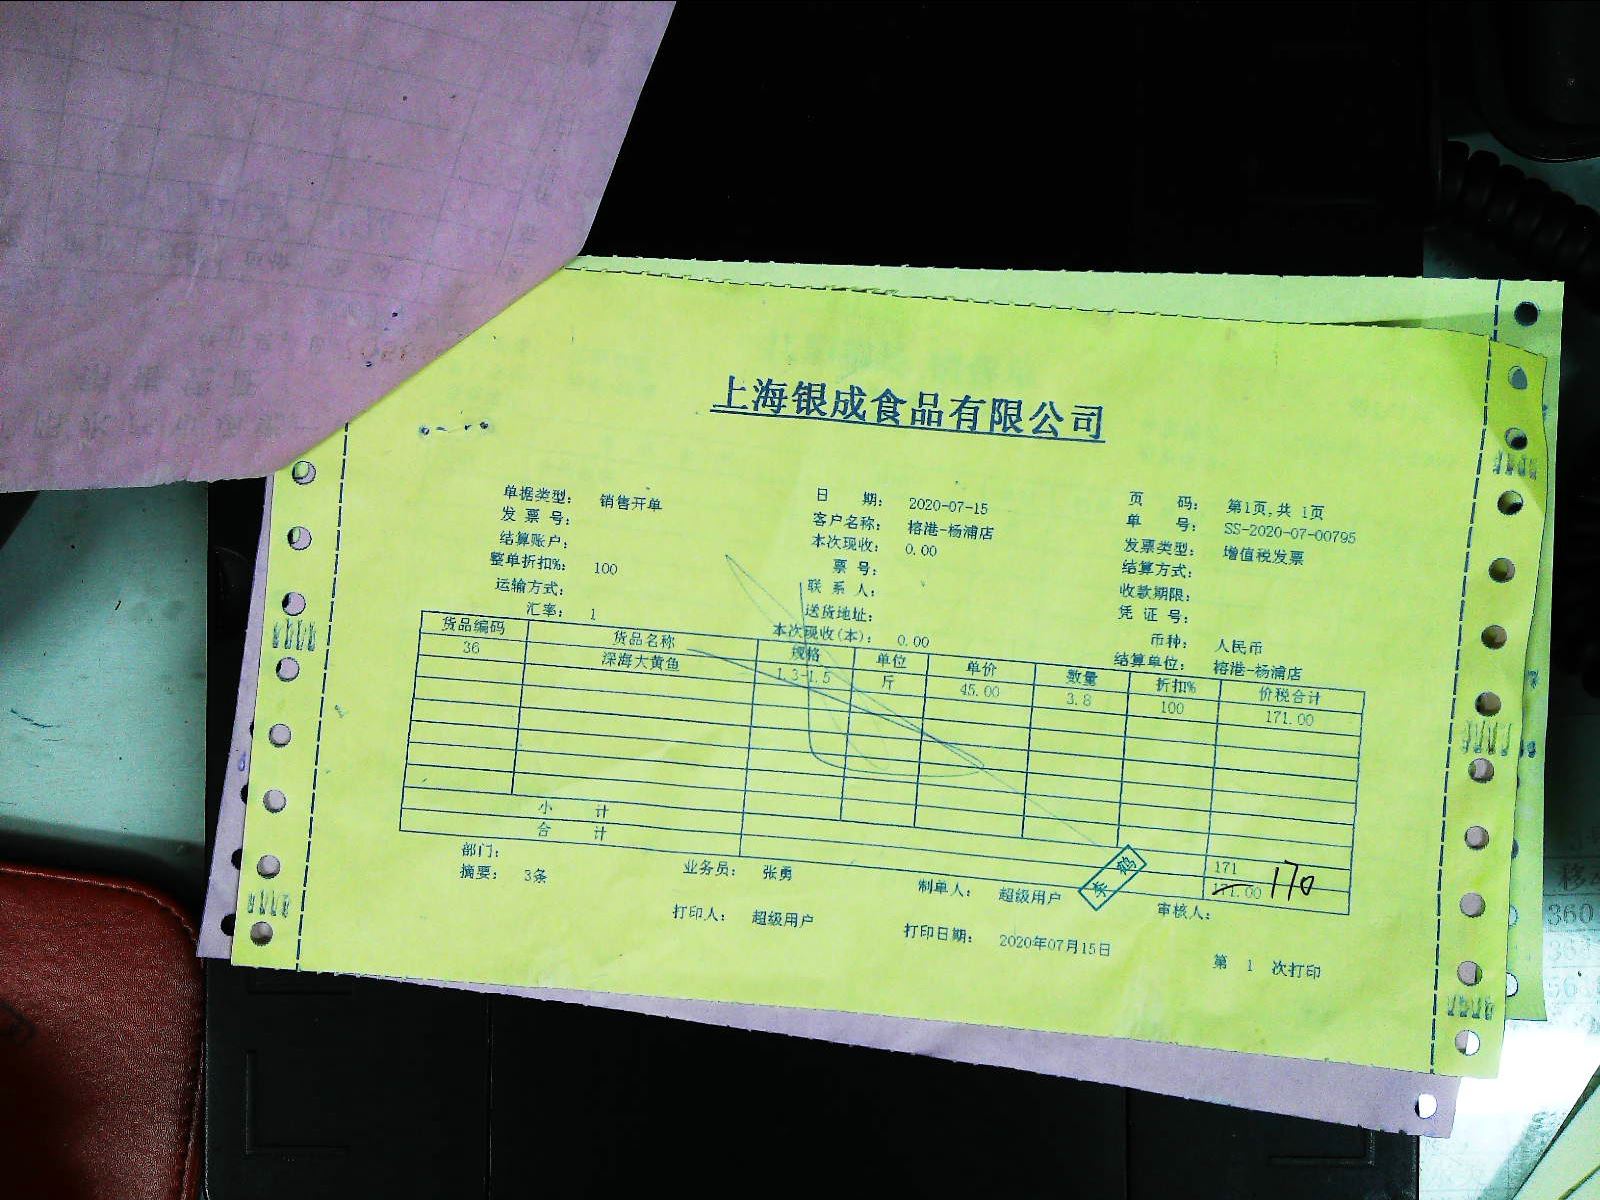 上海银成食品有限公司
单据类型： 销售开单 日 期： 2020-07-15 页 码： 第1页,共 1页
发 票 号： 客户名称： 榕港-杨浦店 单 号： SS-2020-07-00795
结算账户： 本次现收： 0.00 发票类型： 增值税发票
整单折扣%： 100 票 号： 结算方式：
运输方式： 联 系 人： 收款期限：
汇率： 1 送货地址： 凭 证 号：
本次现收(本)： 0.00 币种： 人民币
结算单位： 榕港-杨浦店
货品编码 货品名称 规格 单位 单价 数量 折扣% 价税合计
36 深海大黄鱼 1.3-1.5 斤 45.00 3.8 100 171.00
小 计 171
合 计 171.00 170
部门： 业务员： 张勇 制单人： 超级用户 审核人：
摘要： 3条
打印人： 超级用户 打印日期： 2020年07月15日 第 1 次打印
360